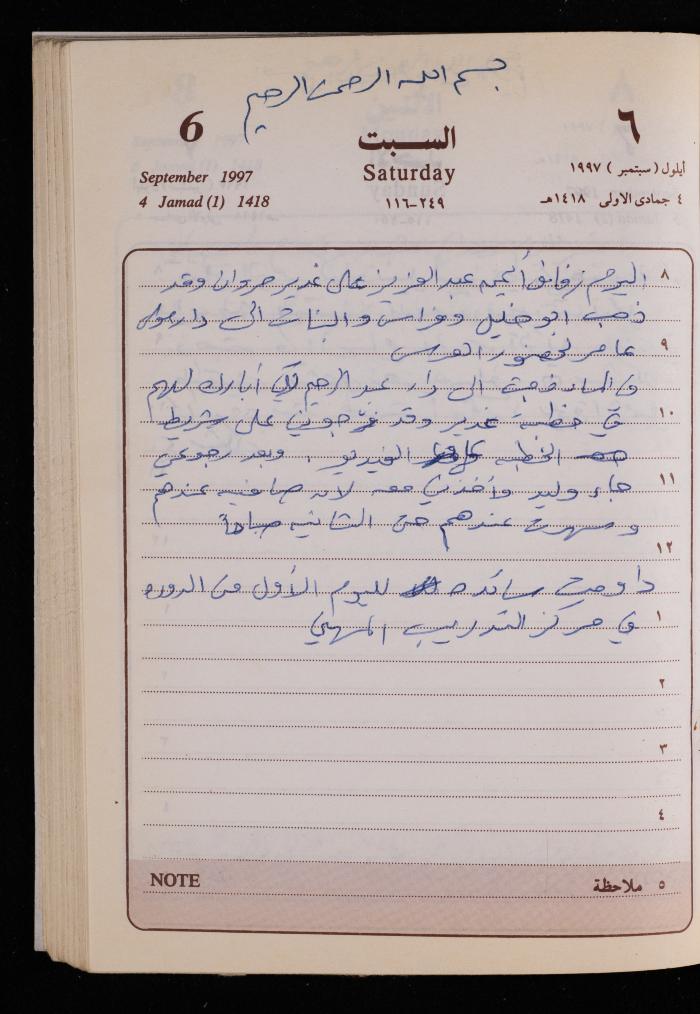 بسم الله الرحمن الرحيم
6
السبت
٦
September 1997
Saturday
أيلول (سبتمبر) ١٩٩٧
4 Jamad (1) 1418
٢٤٩-١١٦
٤ جمادى الاولى ١٤١٨هـ
٨
اليوم زفاف أيمن عبد العزيز على غدير مروان وقد
ذهب ابو خليل وفراس والبنات الى دار
٩
عامر لحضور العرس
في المساء ذهبت الى دار عبد الرحيم لكي أبارك لهم
١٠
في خطبة غدير وقد فرجوني على شريط
الخطبه الفيديو، وبعد رجوعي
١١
جاء وليد وأخذني معه لانه صافيه عندهم
وسهرت عندهم حتى الثانيه صباحاً
١٢
داومت سائده لليوم الأول من الدوره
١
في مركز التدريب المهني
٢
٣
٤
NOTE
٥ ملاحظة